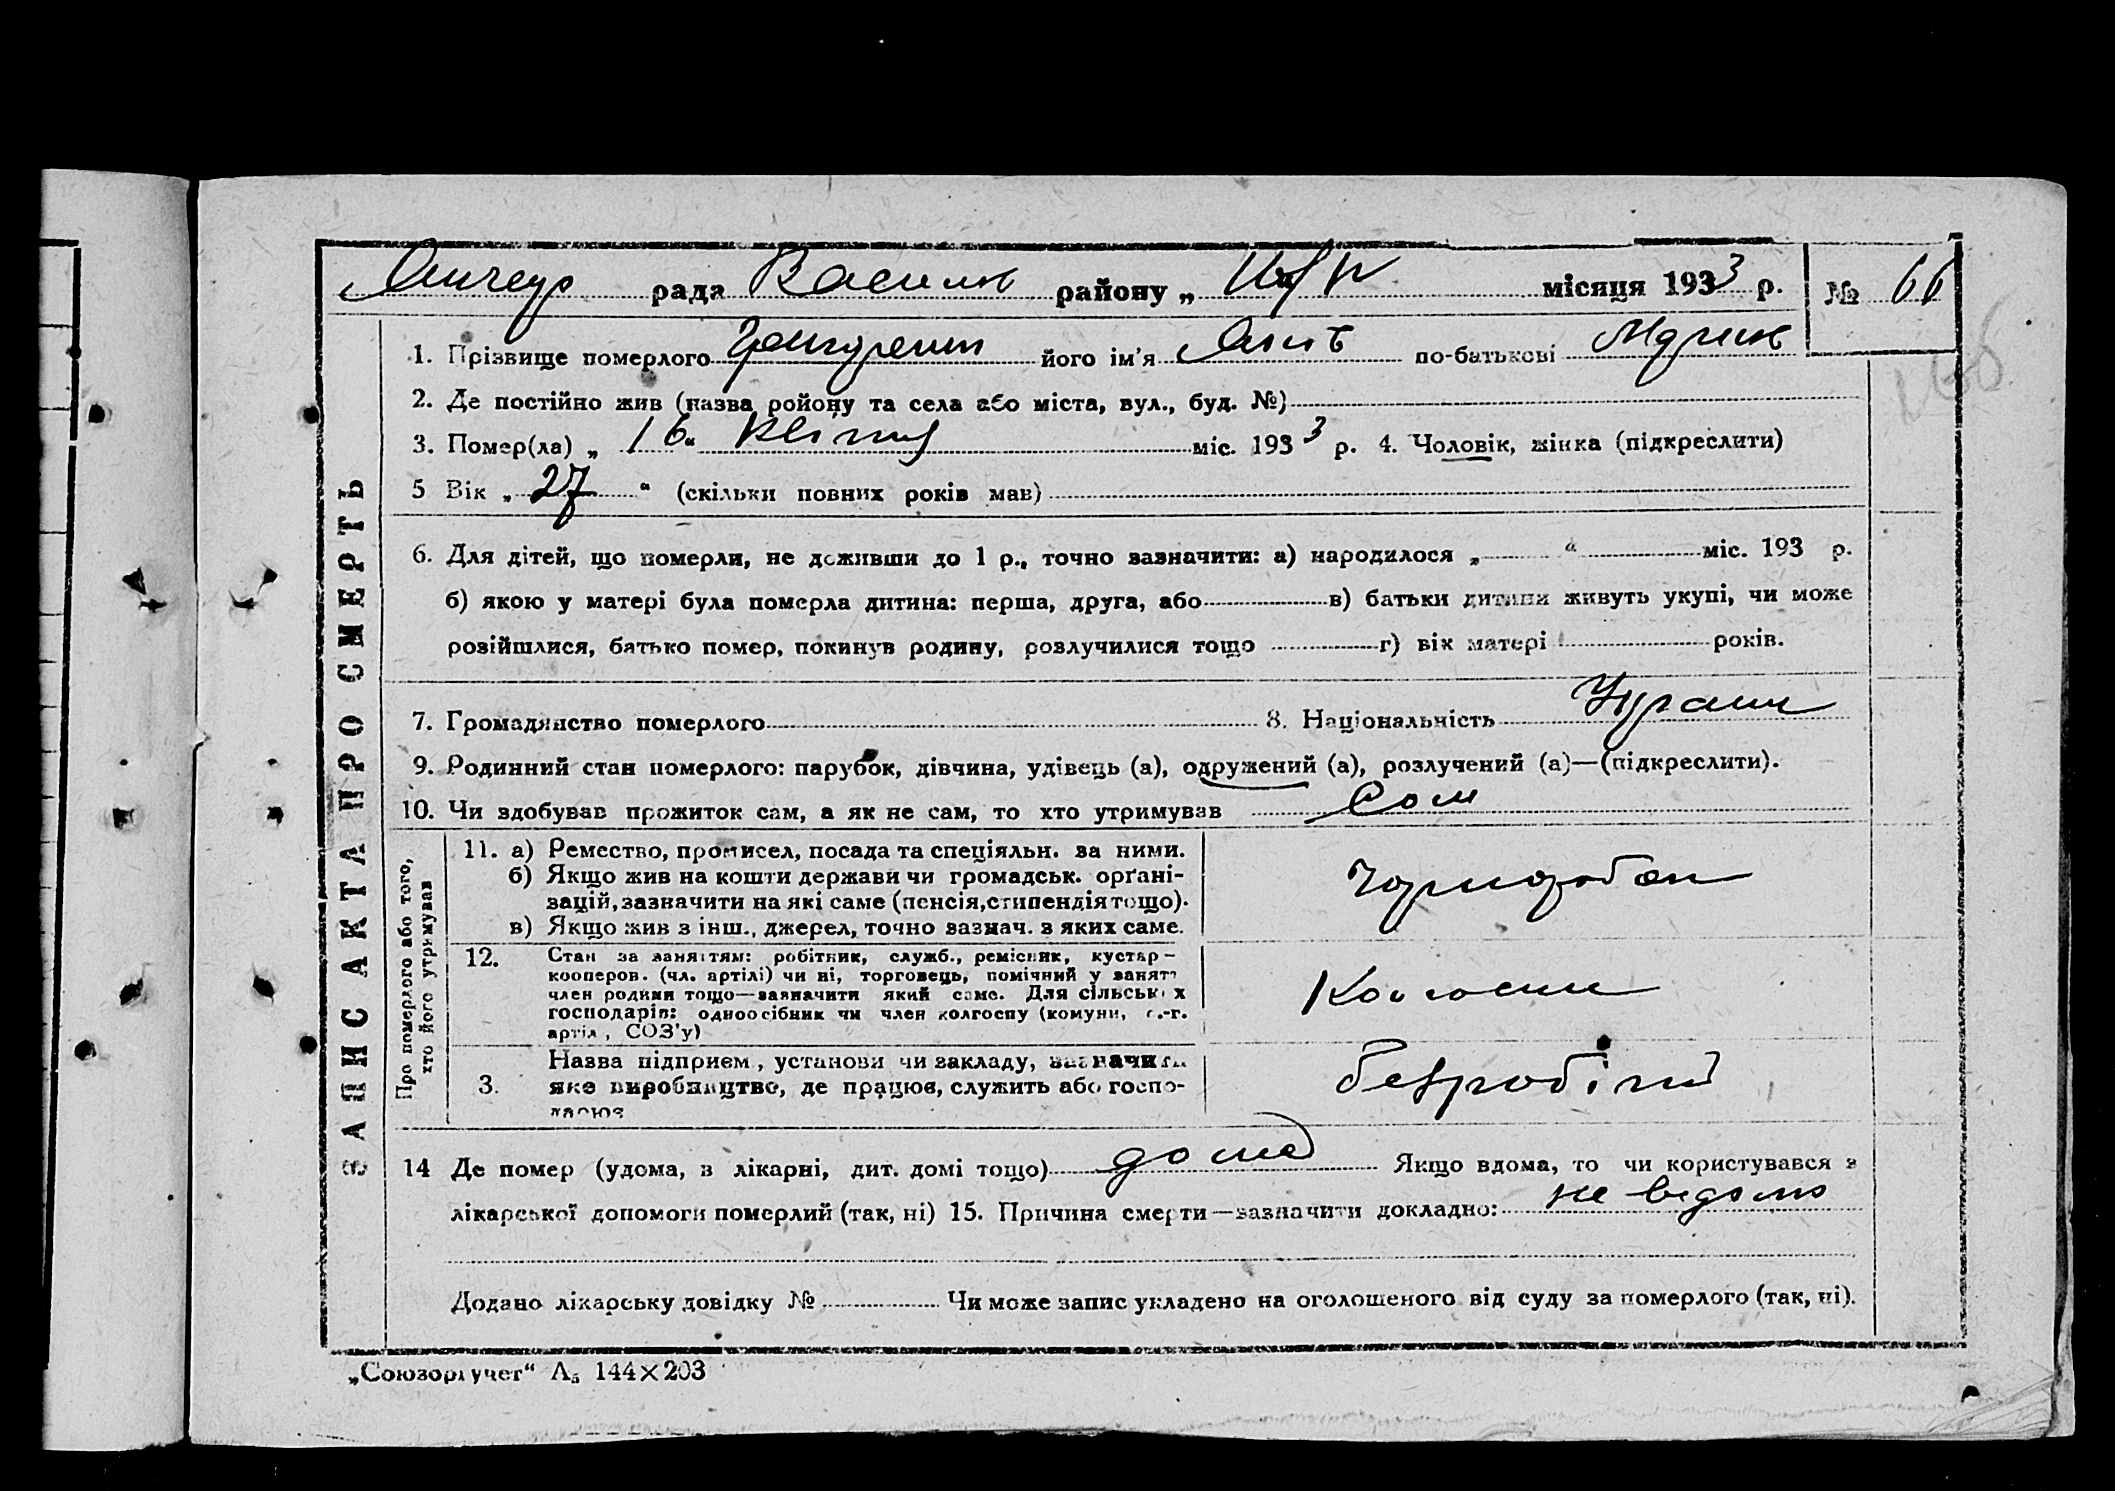 рада Василк району „ місяця 1933 р. № 66
1. Прізвище померлого його ім'я по-батькові
2. Де постійно жив (назва ройону та села або міста, вул., буд. №)
3. Помер(ла) „ 16 “ квітня міс. 1933 р. 4. Чоловік, жінка (підкреслити)
5 Вік „ 27 “ (скільки повних років мав)
6. Для дітей, що померли, не доживши до 1 р., точно зазначити: а) народилося „ “ міс. 193 р.
б) якою у матері була померла дитина: перша, друга, або в) батьки дитини живуть укупі, чи може
розійшлися, батько помер, покинув родину, розлучилися тощо г) вік матері років.
7. Громадянство померлого 8. Національність Украин
9. Родинний стан померлого: парубок, дівчина, удівець (а), одружений (а), розлучений (а)—(підкреслити).
10. Чи здобував прожиток сам, а як не сам, то хто утримував Сам
ЗАПИС АКТА ПРО СМЕРТЬ
Про померлого або того,
хто його утримував
11. а) Ремество, промисел, посада та спеціяльн. за ними.
б) Якщо жив на кошти держави чи громадськ. орґані-
зацій, зазначити на які саме (пенсія, стипендія тощо).
в) Якщо жив з інш., джерел, точно зазнач. з яких саме.
Чорнороб
12. Стан за заняттям: робітник, служб., ремісник, кустар-
кооперов. (чл. артілі) чи ні, торговець, помічний у занятт
член родини тощо—зазначити який саме. Для сільськ х
господарів: одноосібник чи член колгоспу (комуни, с.-г.
артіл , СОЗ'у)
3. Назва підприєм , установи чи закладу, зазначити
яке виробництво, де працює, служить або госпо-
дарює
безробітний
14 Де помер (удома, в лікарні, дит. домі тощо) дома Якщо вдома, то чи користувався з
лікарської допомоги померлий (так, ні) 15. Причина смерти—зазначити докладно: не відомо
Додано лікарську довідку № Чи може запис укладено на оголошеного від суду за померлого (так, ні).
„Союзоргучет“ А5 144×203